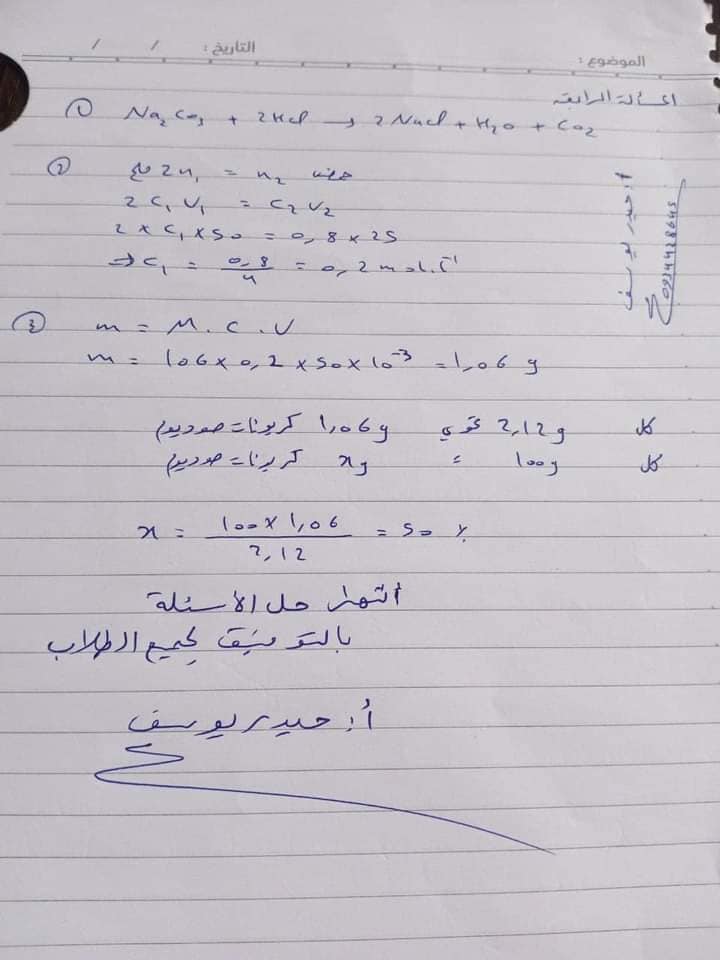 الموضوع :
التاريخ : / /
المسألة الرابعة
① Na₂CO₃ + 2HCl → 2NaCl + H₂O + CO₂
② ملح 2n₁ = n₂ حمض
2 C₁ V₁ = C₂ V₂
2 × C₁ × 50 = 0,8 × 25
⇒ C₁ = 0,8 / 4 = 0,2 mol.L⁻¹
③ m = M . C . V
m = 106 × 0,2 × 50 × 10⁻³ = 1,06 g
كل 2,12 g تحوي 1,06 g كربونات صوديوم
كل 100 g = x g كربونات صوديوم
x = 100 × 1,06 / 2,12 = 50 %
انتهى حل الأسئلة
بالتوفيق لجميع الطلاب
أ. حيدر يوسف
أ. حيدر يوسف
0934428645